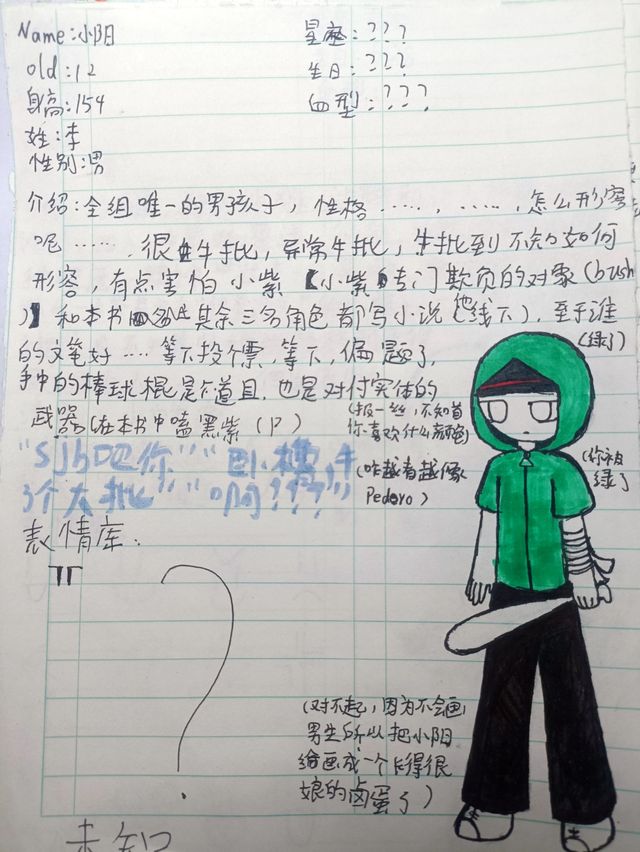 Name:小阳
星座:???
old:12
生日:???
身高:154
血型:???
姓:李
性别:男
介绍:全组唯一的男孩子，性格……，……，怎么形容
呢……，很牛批，异常牛批，牛批到不知如何
形容，有点害怕小紫【小紫专门欺负的对象(bush
)】和本书其余三名角色都写小说(他线下)，至于谁
(绿了)
的文笔好……等下投个票，等下，偏题了，
手中的棒球棍是个道具，也是对付实体的
武器(在本书中嗑黑紫(P)
(报一丝，不知道
你喜欢什么颜色)
(你被
绿了
(咋越看越像
Pedero)
"sjb吧你""
个大批""啊???"
表情库:
?
(对不起，因为不会画
男生所以把小阳
给画成一个长得很
娘的卤蛋了)
未知